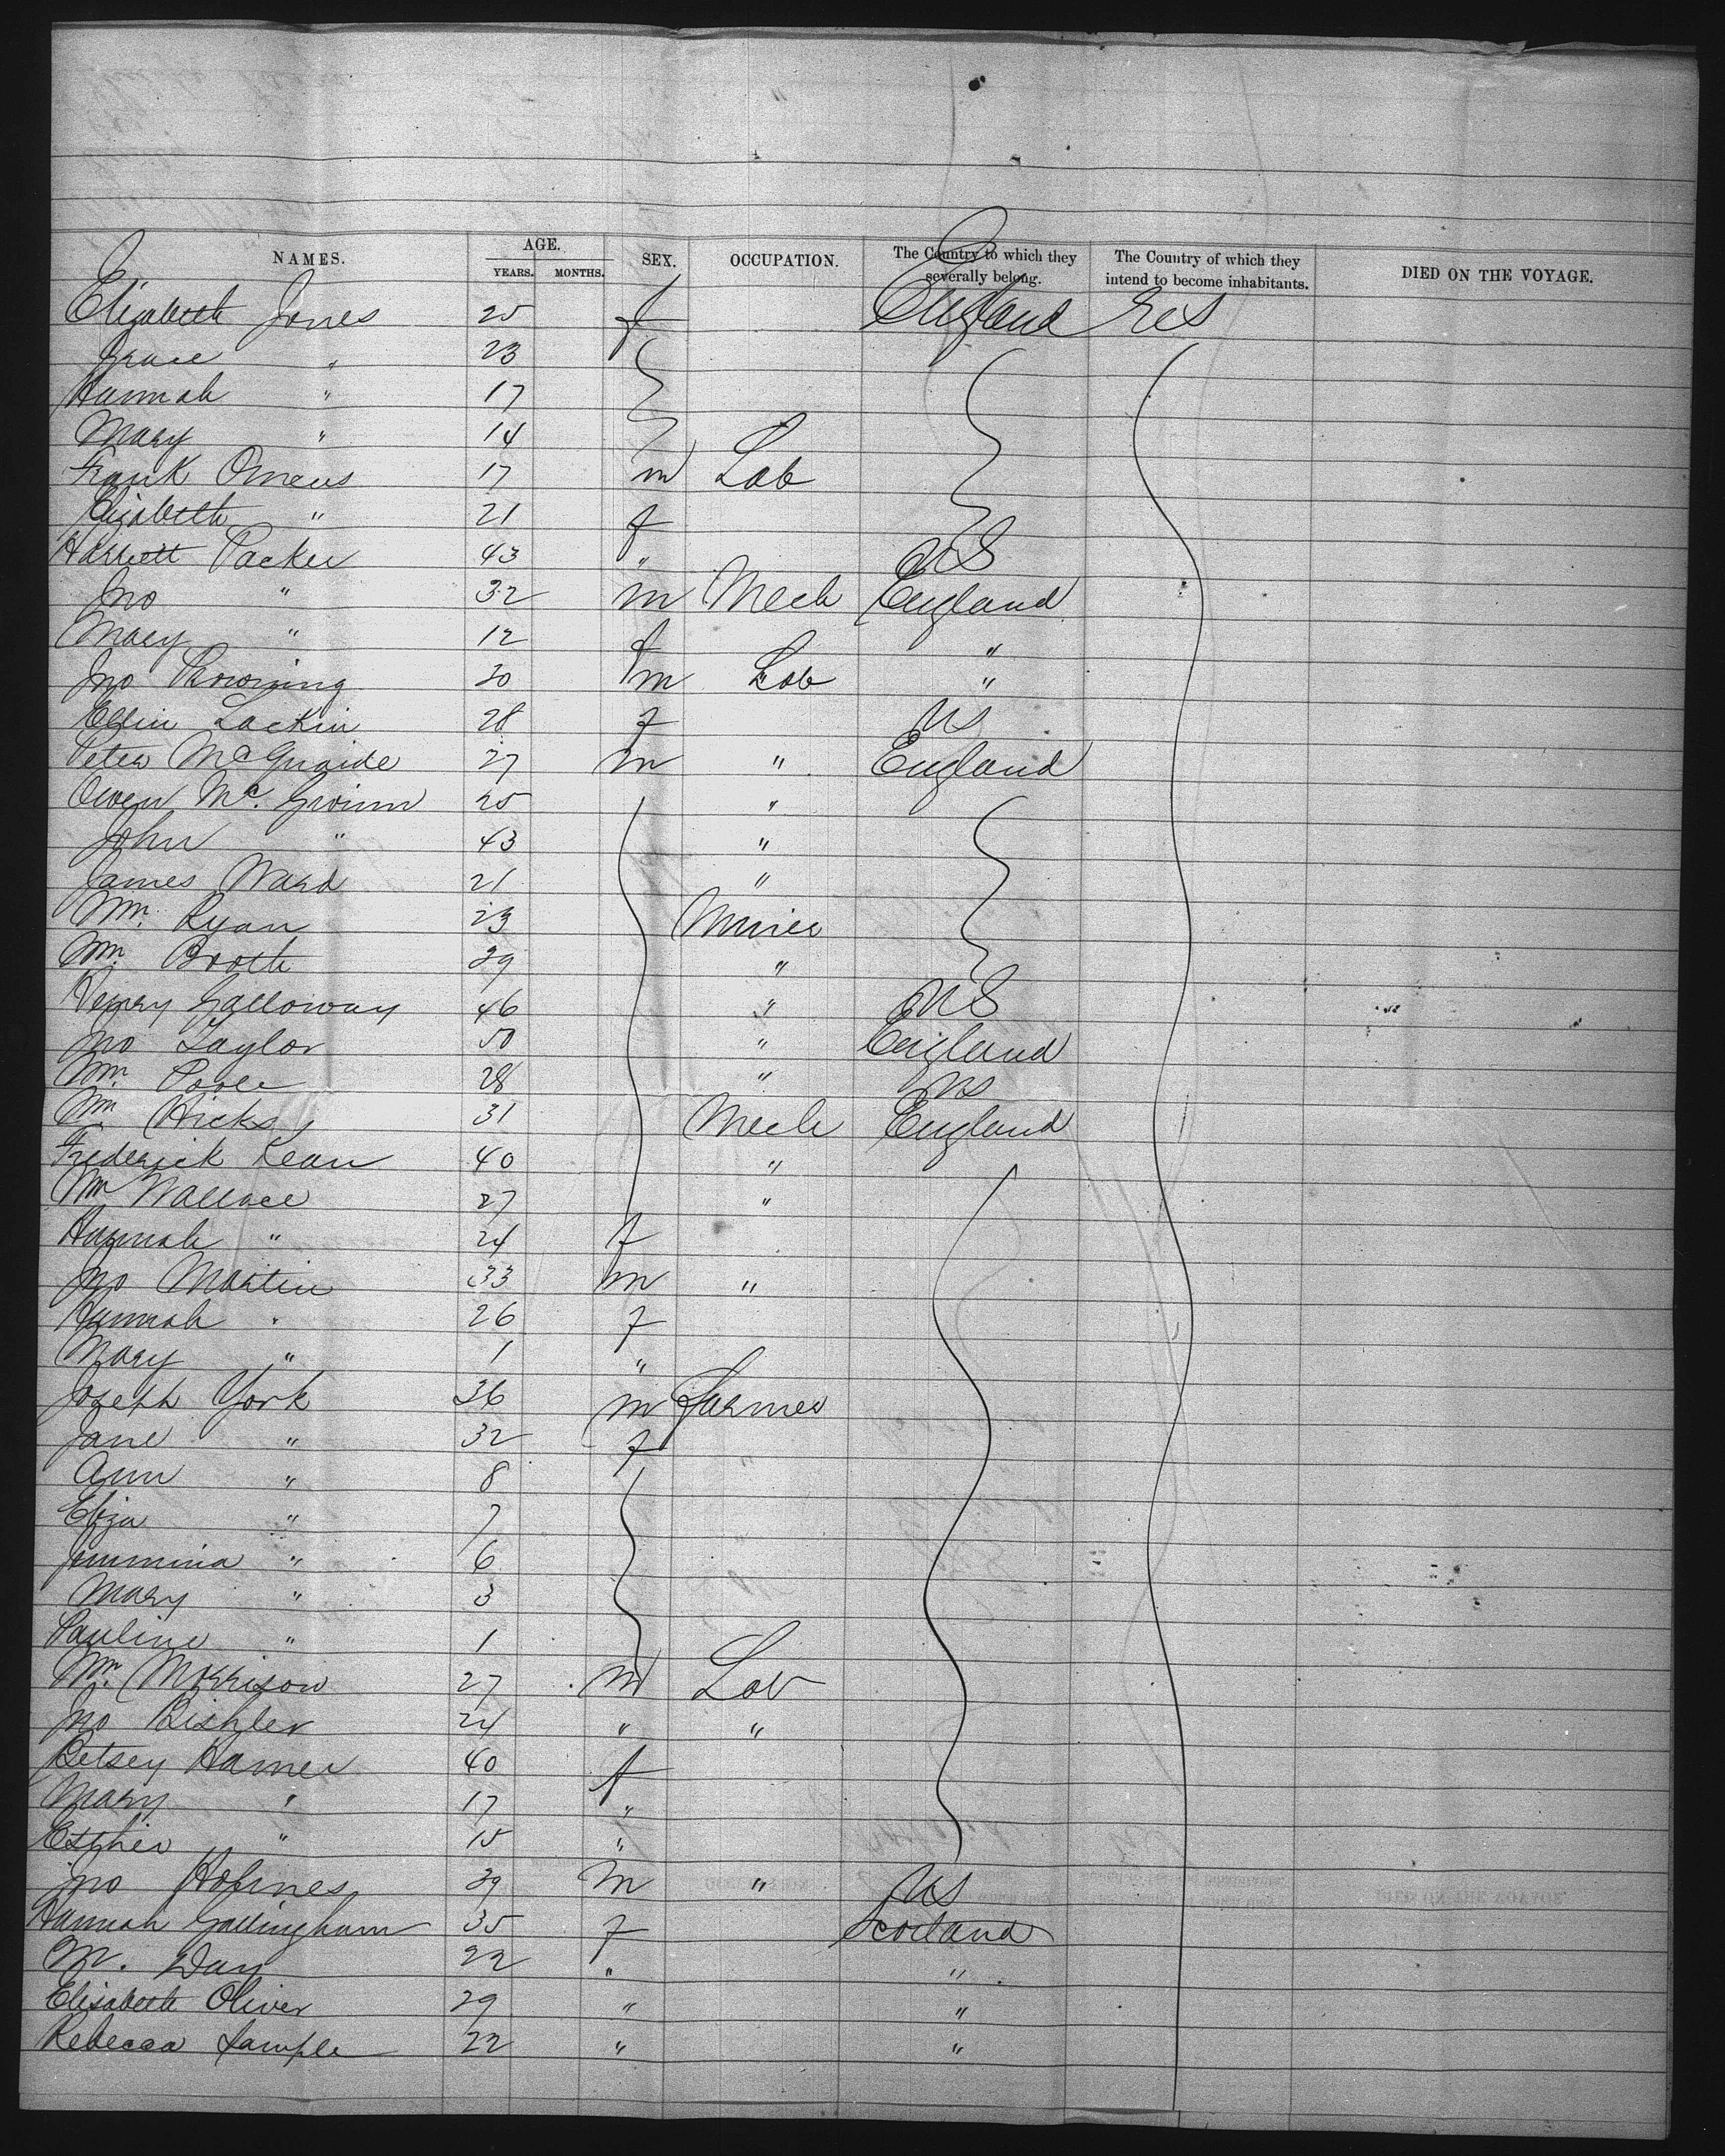 NAMES. AGE. YEARS. MONTHS. SEX. OCCUPATION. The Country to which they severally belong. The Country of which they intend to become inhabitants. DIED ON THE VOYAGE.
Elizabeth Jones 25 f England U S
Grace " 23
Hannah " 17
Mary " 14
Frank Omens 17 m Lab
Elizabeth " 21 f
Harriett Packer 43 " U S
Jno " 32 m Mech England
Mary " 12 f "
Jno Browning 30 m Lab "
Ellin Lackin 28 f U S
Peter McQuaide 27 m " England
Owen Mc. Gwinn 25 "
John " 43 "
James Ward 21 "
Wm. Ryan 23 Miner
Wm. Booth 29 "
Henry Galloway 46 " U S
Jno Taylor 50 " England
Wm. Poole 28 " U S
Wm. Hicks 31 Mech England
Frederick Kean 40 "
Wm Wallace 27 "
Hannah " 24 f
Jno Martin 33 m "
Hannah " 26 f
Mary " 1 "
Joseph York 36 m Farmer
Jane " 32 f
Ann " 8
Eliza " 7
Jemmina " 6
Mary " 3
Pauline " 1
Wm. Morrison 27 m Lab
Jno 24 " "
Betsey Hamer 40 f
Mary " 17 "
Esther " 15 "
Jno Holmes 39 m " U S
Hannah Gallingham 35 f Scotland
M. Day 22 " "
Elisabeth Oliver 29 " "
Rebecca Sample 22 " "